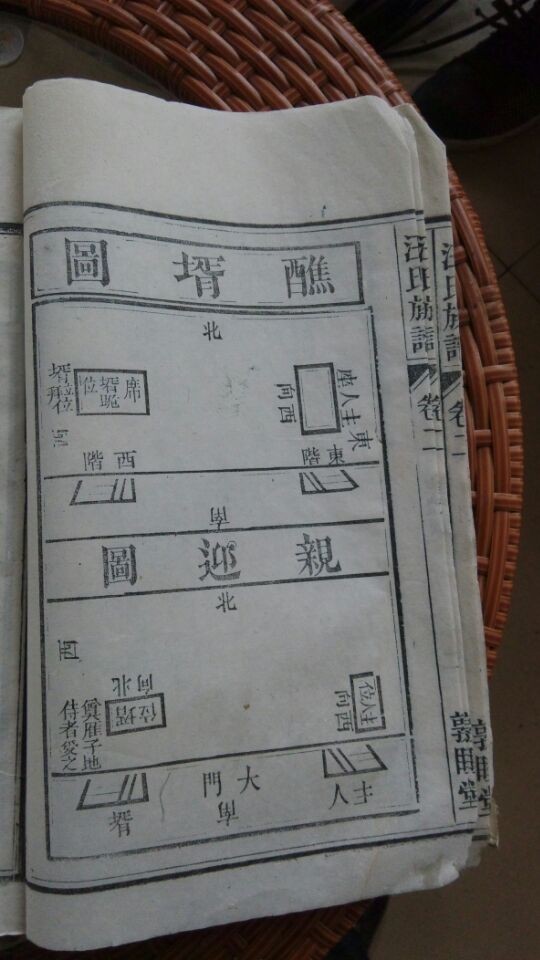 醮壻圖
北
東
主人座
西向
東階
席
壻跪位
壻拜位
西
西階
南
親迎圖
北
西
主人位
西向
壻位
北向
奠雁于地
侍者受之
大門
南
主人
壻
汪氏族譜
卷二
敦睦堂
汪氏族譜
卷二
敦睦堂